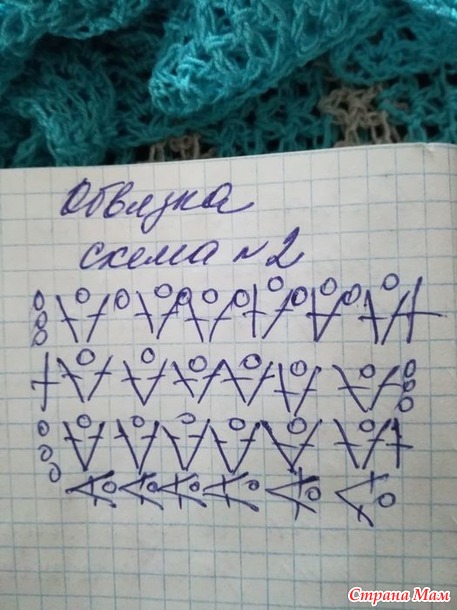 Обвязка
схема №2
Страна Мам